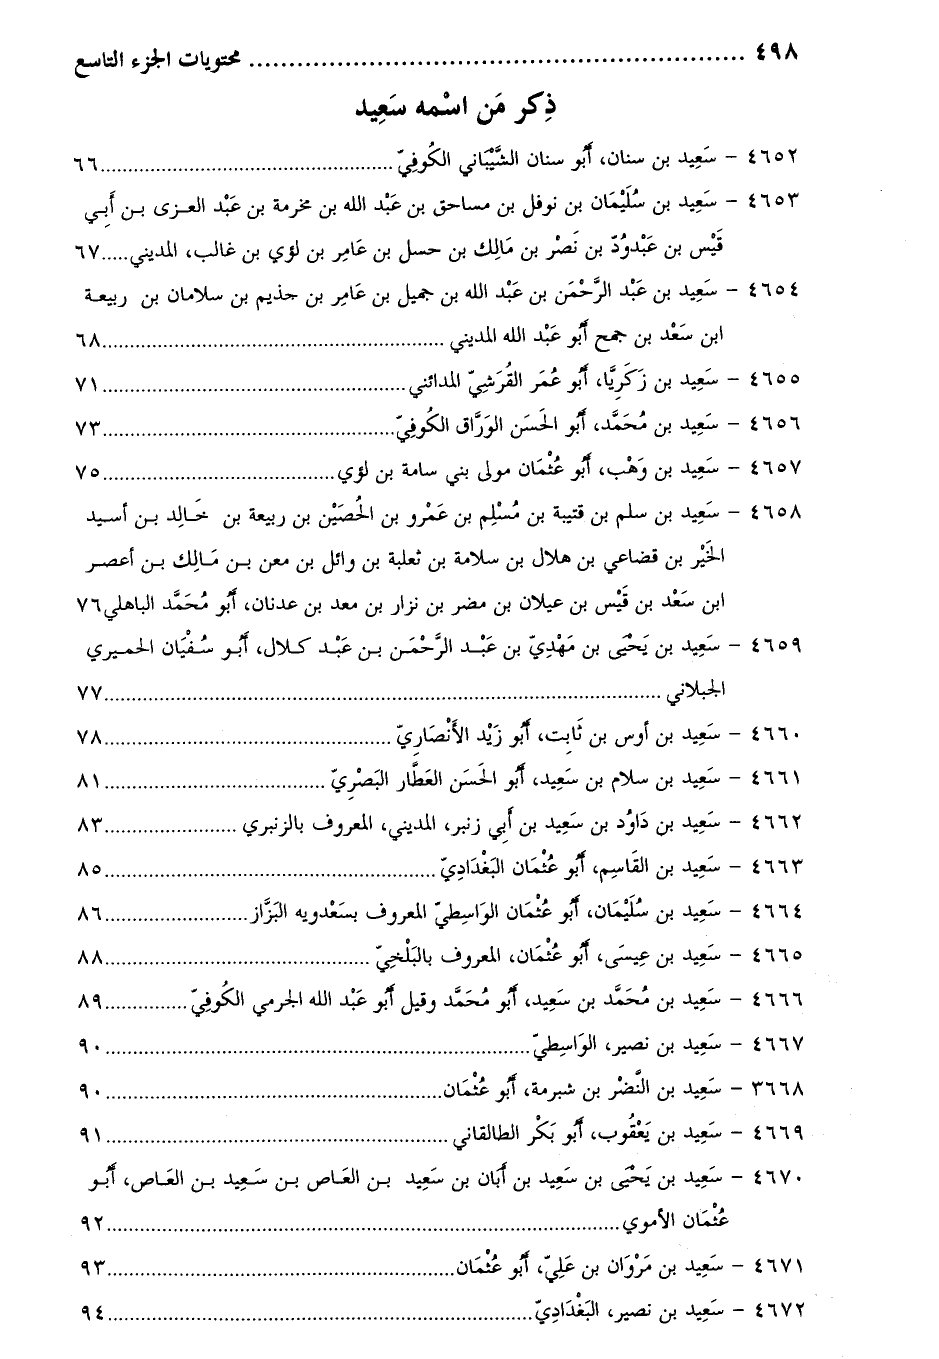 ٤٩٨ ............................................................... محتويات الجزء التاسع
ذِكر مَن اسْمه سَعِيد
٤٦٥٢ – سَعِيد بن سنان، أَبُو سنان الشَّيْبَاني الكُوفِيّ.....................................٦٦
٤٦٥٣ – سَعِيد بن سُلَيْمَان بن نوفل بن مساحق بن عَبْد الله بن مخرمة بن عَبْد العزى بن أَبِي
قَيْس بن عَبْدوُدّ بن نَصْر بن مَالِك بن حسل بن عَامِر بن لؤي بن غالب، المديني.....٦٧
٤٦٥٤ – سَعِيد بن عَبْد الرَّحْمَن بن عَبْد الله بن جميل بن عَامِر بن حذيم بن سلامان بن ربيعة
ابن سَعْد بن جمح أَبُو عَبْد الله المديني ...........................................٦٨
٤٦٥٥ – سَعِيد بن زَكَرِيَّا، أَبُو عُمَر القُرَشِيّ المدائني......................................٧١
٤٦٥٦ – سَعِيد بن مُحَمَّد، أَبُو الحَسَن الوَرَّاق الكُوفِيّ.....................................٧٣
٤٦٥٧ – سَعِيد بن وَهْب، أَبُو عُثْمَان مولى بني سامة بن لؤي.............................٧٥
٤٦٥٨ – سَعِيد بن سلم بن قتيبة بن مُسْلِم بن عَمْرو بن الحُصَيْن بن ربيعة بن خَالِد بن أسيد
الخَيْر بن قضاعي بن هلال بن سلامة بن ثعلبة بن وائل بن معن بن مَالِك بن أعصر
ابن سَعْد بن قَيْس بن عيلان بن مضر بن نزار بن معد بن عدنان، أَبُو مُحَمَّد الباهلي٧٦
٤٦٥٩ – سَعِيد بن يَحْيَى بن مَهْدِيّ بن عَبْد الرَّحْمَن بن عَبْد كلال، أَبُو سُفْيَان الحميري
الجبلاني ......................................................................٧٧
٤٦٦٠ – سَعِيد بن أوس بن ثَابِت، أَبُو زَيْد الأَنْصَارِيّ ....................................٧٨
٤٦٦١ – سَعِيد بن سلام بن سَعِيد، أَبُو الحَسَن العَطَّار البَصْرِيّ............................٨١
٤٦٦٢ – سَعِيد بن دَاوُد بن سَعِيد بن أَبِي زنبر، المديني، المعروف بالزنبري .................٨٣
٤٦٦٣ – سَعِيد بن القَاسِم، أَبُو عُثْمَان البَغْدَادِيّ..........................................٨٥
٤٦٦٤ – سَعِيد بن سُلَيْمَان، أَبُو عُثْمَان الوَاسِطِيّ المعروف بسَعْدويه البَزَّاز..................٨٦
٤٦٦٥ – سَعِيد بن عِيسَى، أَبُو عُثْمَان، المعروف بالبَلْخِيّ.................................٨٨
٤٦٦٦ – سَعِيد بن مُحَمَّد بن سَعِيد، أَبُو مُحَمَّد وقيل أَبُو عَبْد الله الجرمي الكُوفِيّ...........٨٩
٤٦٦٧ – سَعِيد بن نصير، الوَاسِطِيّ.....................................................٩٠
٣٦٦٨ – سَعِيد بن النَّضْر بن شبرمة، أَبُو عُثْمَان..........................................٩٠
٤٦٦٩ – سَعِيد بن يَعْقُوب، أَبُو بَكْر الطالقاني ..........................................٩١
٤٦٧٠ – سَعِيد بن يَحْيَى بن سَعِيد بن أَبَان بن سَعِيد بن العَاص بن سَعِيد بن العَاص، أَبُو
عُثْمَان الأموي................................................................٩٢
٤٦٧١ – سَعِيد بن مَرْوَان بن عَلِيّ، أَبُو عُثْمَان...........................................٩٣
٤٦٧٢ – سَعِيد بن نصير، البَغْدَادِيّ.....................................................٩٤